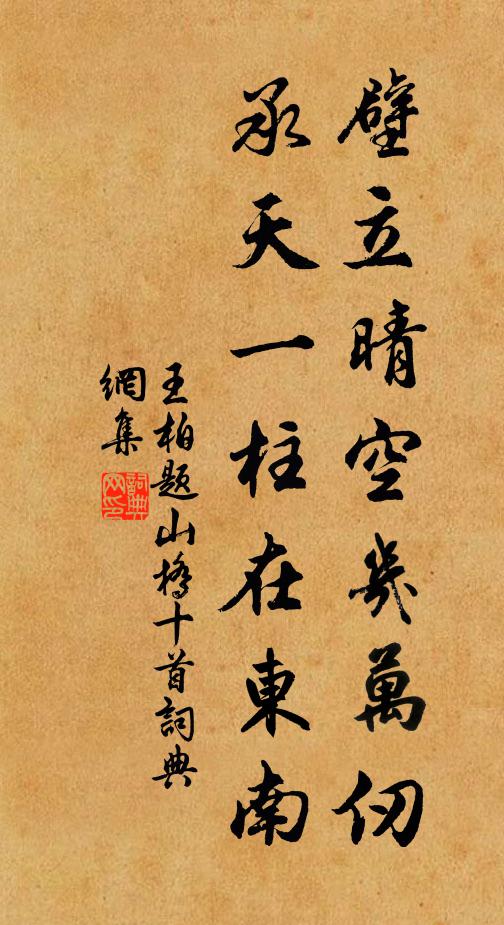 壁立晴空幾萬仞
承天一柱在東南
王柏題山橋十首詞典
網集
詞典
网印